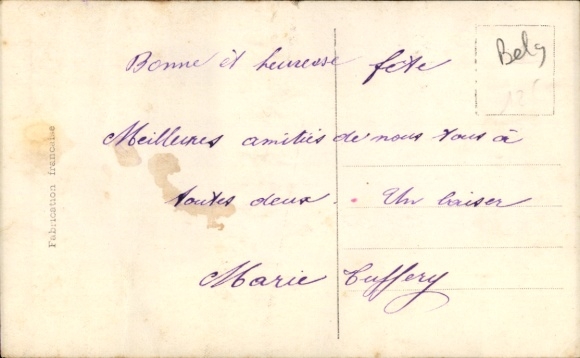 Bonne et heureuse fête
Belg
Meilleures amitiés de nous tous à
toutes deux. Un baiser
Marie Tuffery
Fabrication française